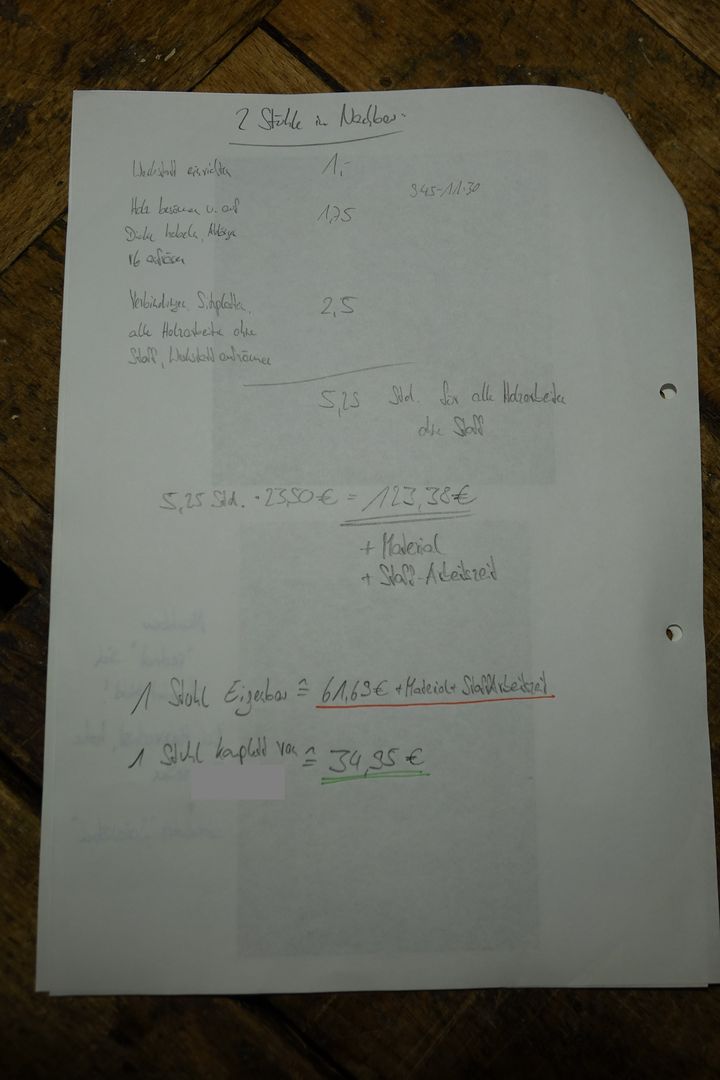 2 Stühle im Nachbau
Werkstatt einrichten 1,-
9.45-11.30
Holz besäumen u. auf 1,75
Dicke hobeln, Ablänge
16 auf
Verbindungen, Sitzplatten, 2,5
alle Holzarbeiten ohne
Stoff, Werkstatt aufräumen
5,25 Std. für alle Holzarbeiten
ohne Stoff
5,25 Std. · 23,50 € = 123,38 €
+ Material
+ Stoff-Arbeitszeit
1 Stuhl Eigenbau ≙ 61,69 € + Material + Stoff Arbeitszeit
1 Stuhl komplett von ≙ 34,95 €